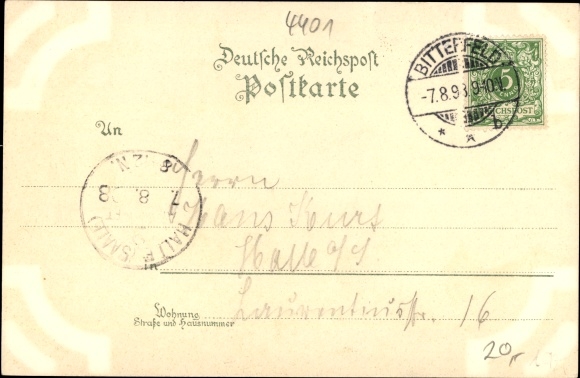 4401
Deutsche Reichspost
Postkarte
BITTERFELD
-7.8.98 9-10V.
* * b
5
REICHSPOST
An
Herrn
Hans Kurt
Halle a/S
HALLE (SAALE)
7. 8. 98
8-12 N.
Laurentiusstr. 16
Wohnung
Straße und Hausnummer
20,-